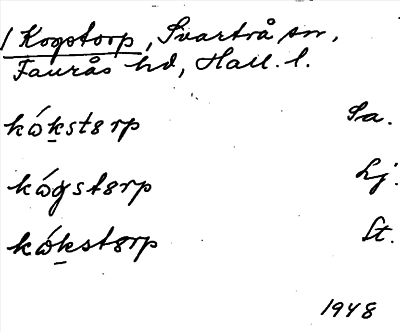 / Kogstorp, Svartrå sn,
Faurås hd, Hall. l.
kó̱kstɵrp Sa.
kógstɵrp Lj.
kó̱kstɵrp St.
1948